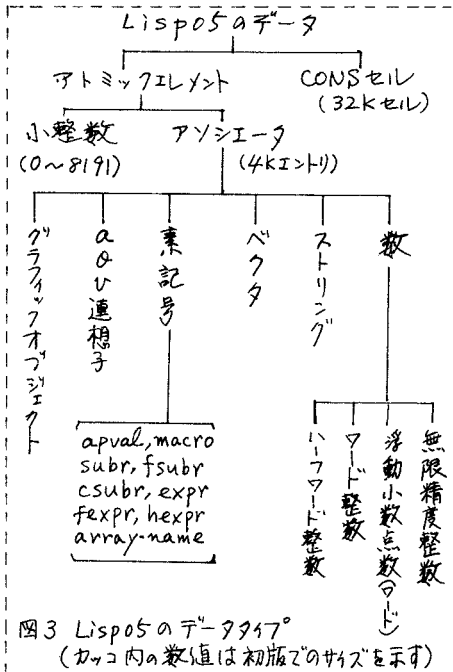 Lisp05のデータ
アトミックエレメント
CONSセル
(32Kセル)
小整数
(0~8191)
アソシエータ
(4Kエントリ)
グラフィックオブジェクト
aのv連想子
素記号
ベクタ
ストリング
数
apval, macro
subr, fsubr
csubr, expr
fexpr, hexpr
array-name
ハーフワード整数
ワード整数
浮動小数点数(ワード)
無限精度整数
図3 Lisp05のデータタイプ
(カッコ内の数値は初版でのサイズを示す)